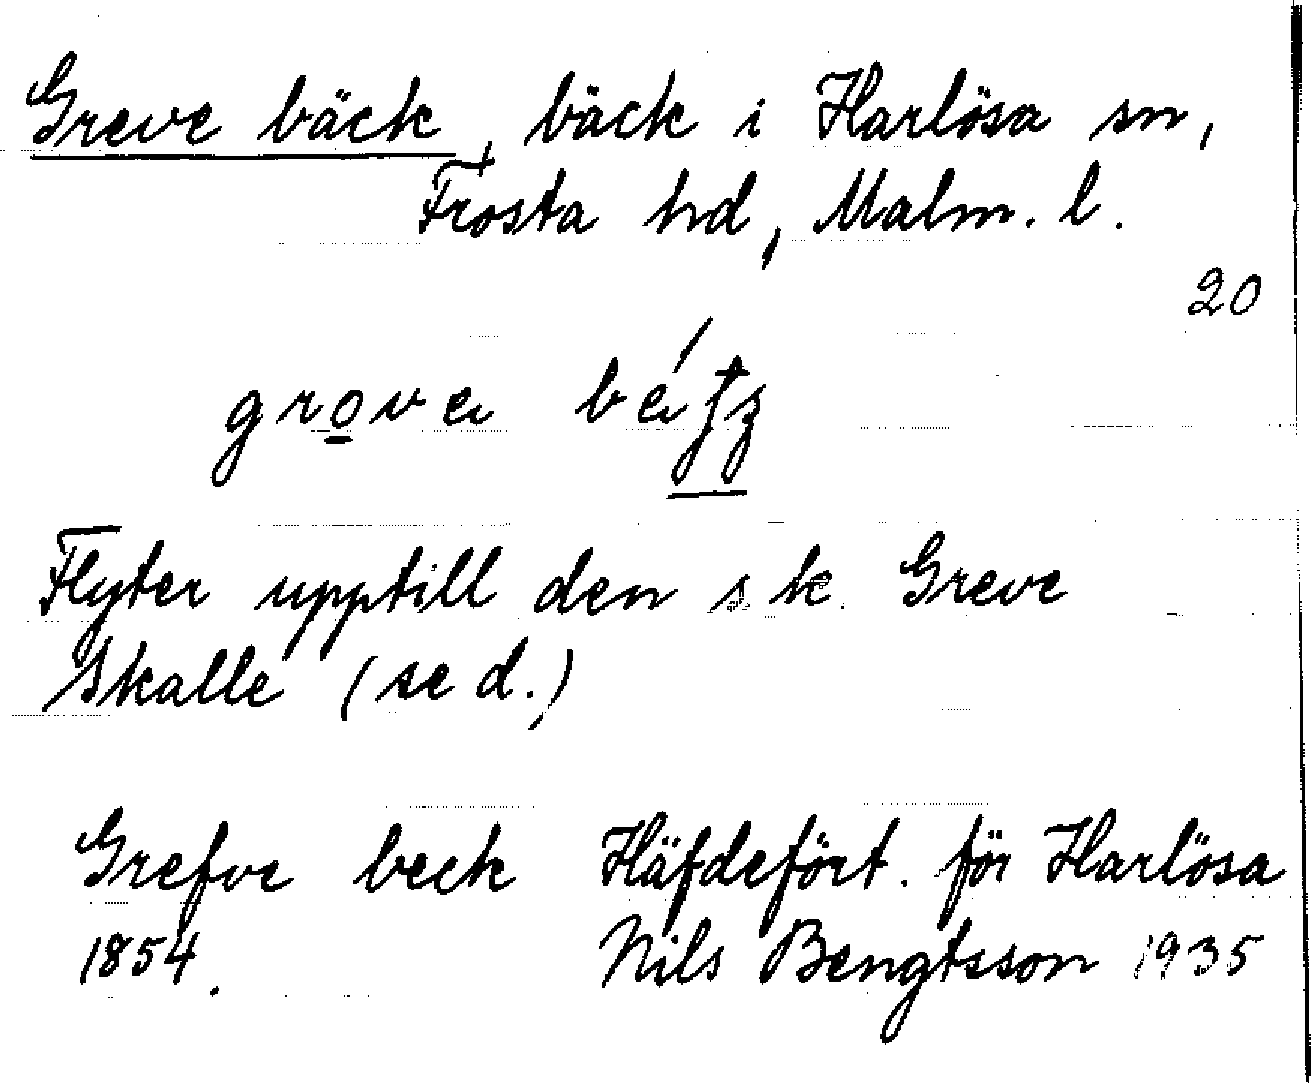 Greve bäck, bäck i Harlösa sn,
Frosta hd, Malm. l.
20
Flyter upptill den s. k. Greve
Skalle (se d.)
Grefve beck Häfdefört. för Harlösa
1854. Nils Bengtsson 1935